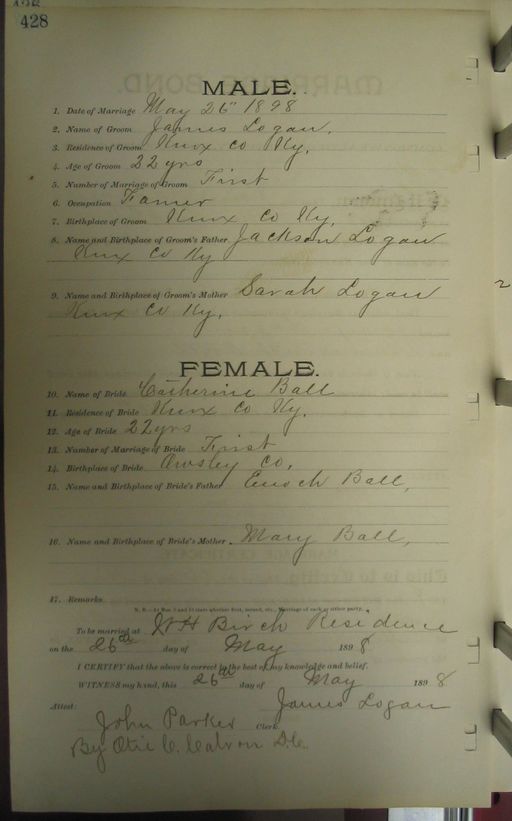 428
MALE.
1. Date of Marriage May 26" 1898
2. Name of Groom James Logan,
3. Residence of Groom Knox Co Ky,
4. Age of Groom 22 yrs
5. Number of Marriage of Groom First
6. Occupation Farmer
7. Birthplace of Groom Knox Co Ky,
8. Name and Birthplace of Groom's Father Jackson Logan
Knox Co Ky
9. Name and Birthplace of Groom's Mother Sarah Logan
Knox Co Ky,
FEMALE.
10. Name of Bride Catherine Ball
11. Residence of Bride Knox Co Ky,
12. Age of Bride 22 yrs
13. Number of Marriage of Bride First
14. Birthplace of Bride Owsley Co,
15. Name and Birthplace of Bride's Father Enoch Ball,
16. Name and Birthplace of Bride's Mother Mary Ball,
17. Remarks
N. B.—In Nos. 5 and 13 state whether first, second, etc., Marriage of each or either party.
To be married at W H Birch Residence
on the 26th day of May 1898
I CERTIFY that the above is correct to the best of my knowledge and belief.
WITNESS my hand, this 26th day of May 1898
James Logan
Attest:
John Parker Clerk
By C. Catron D.C.
2